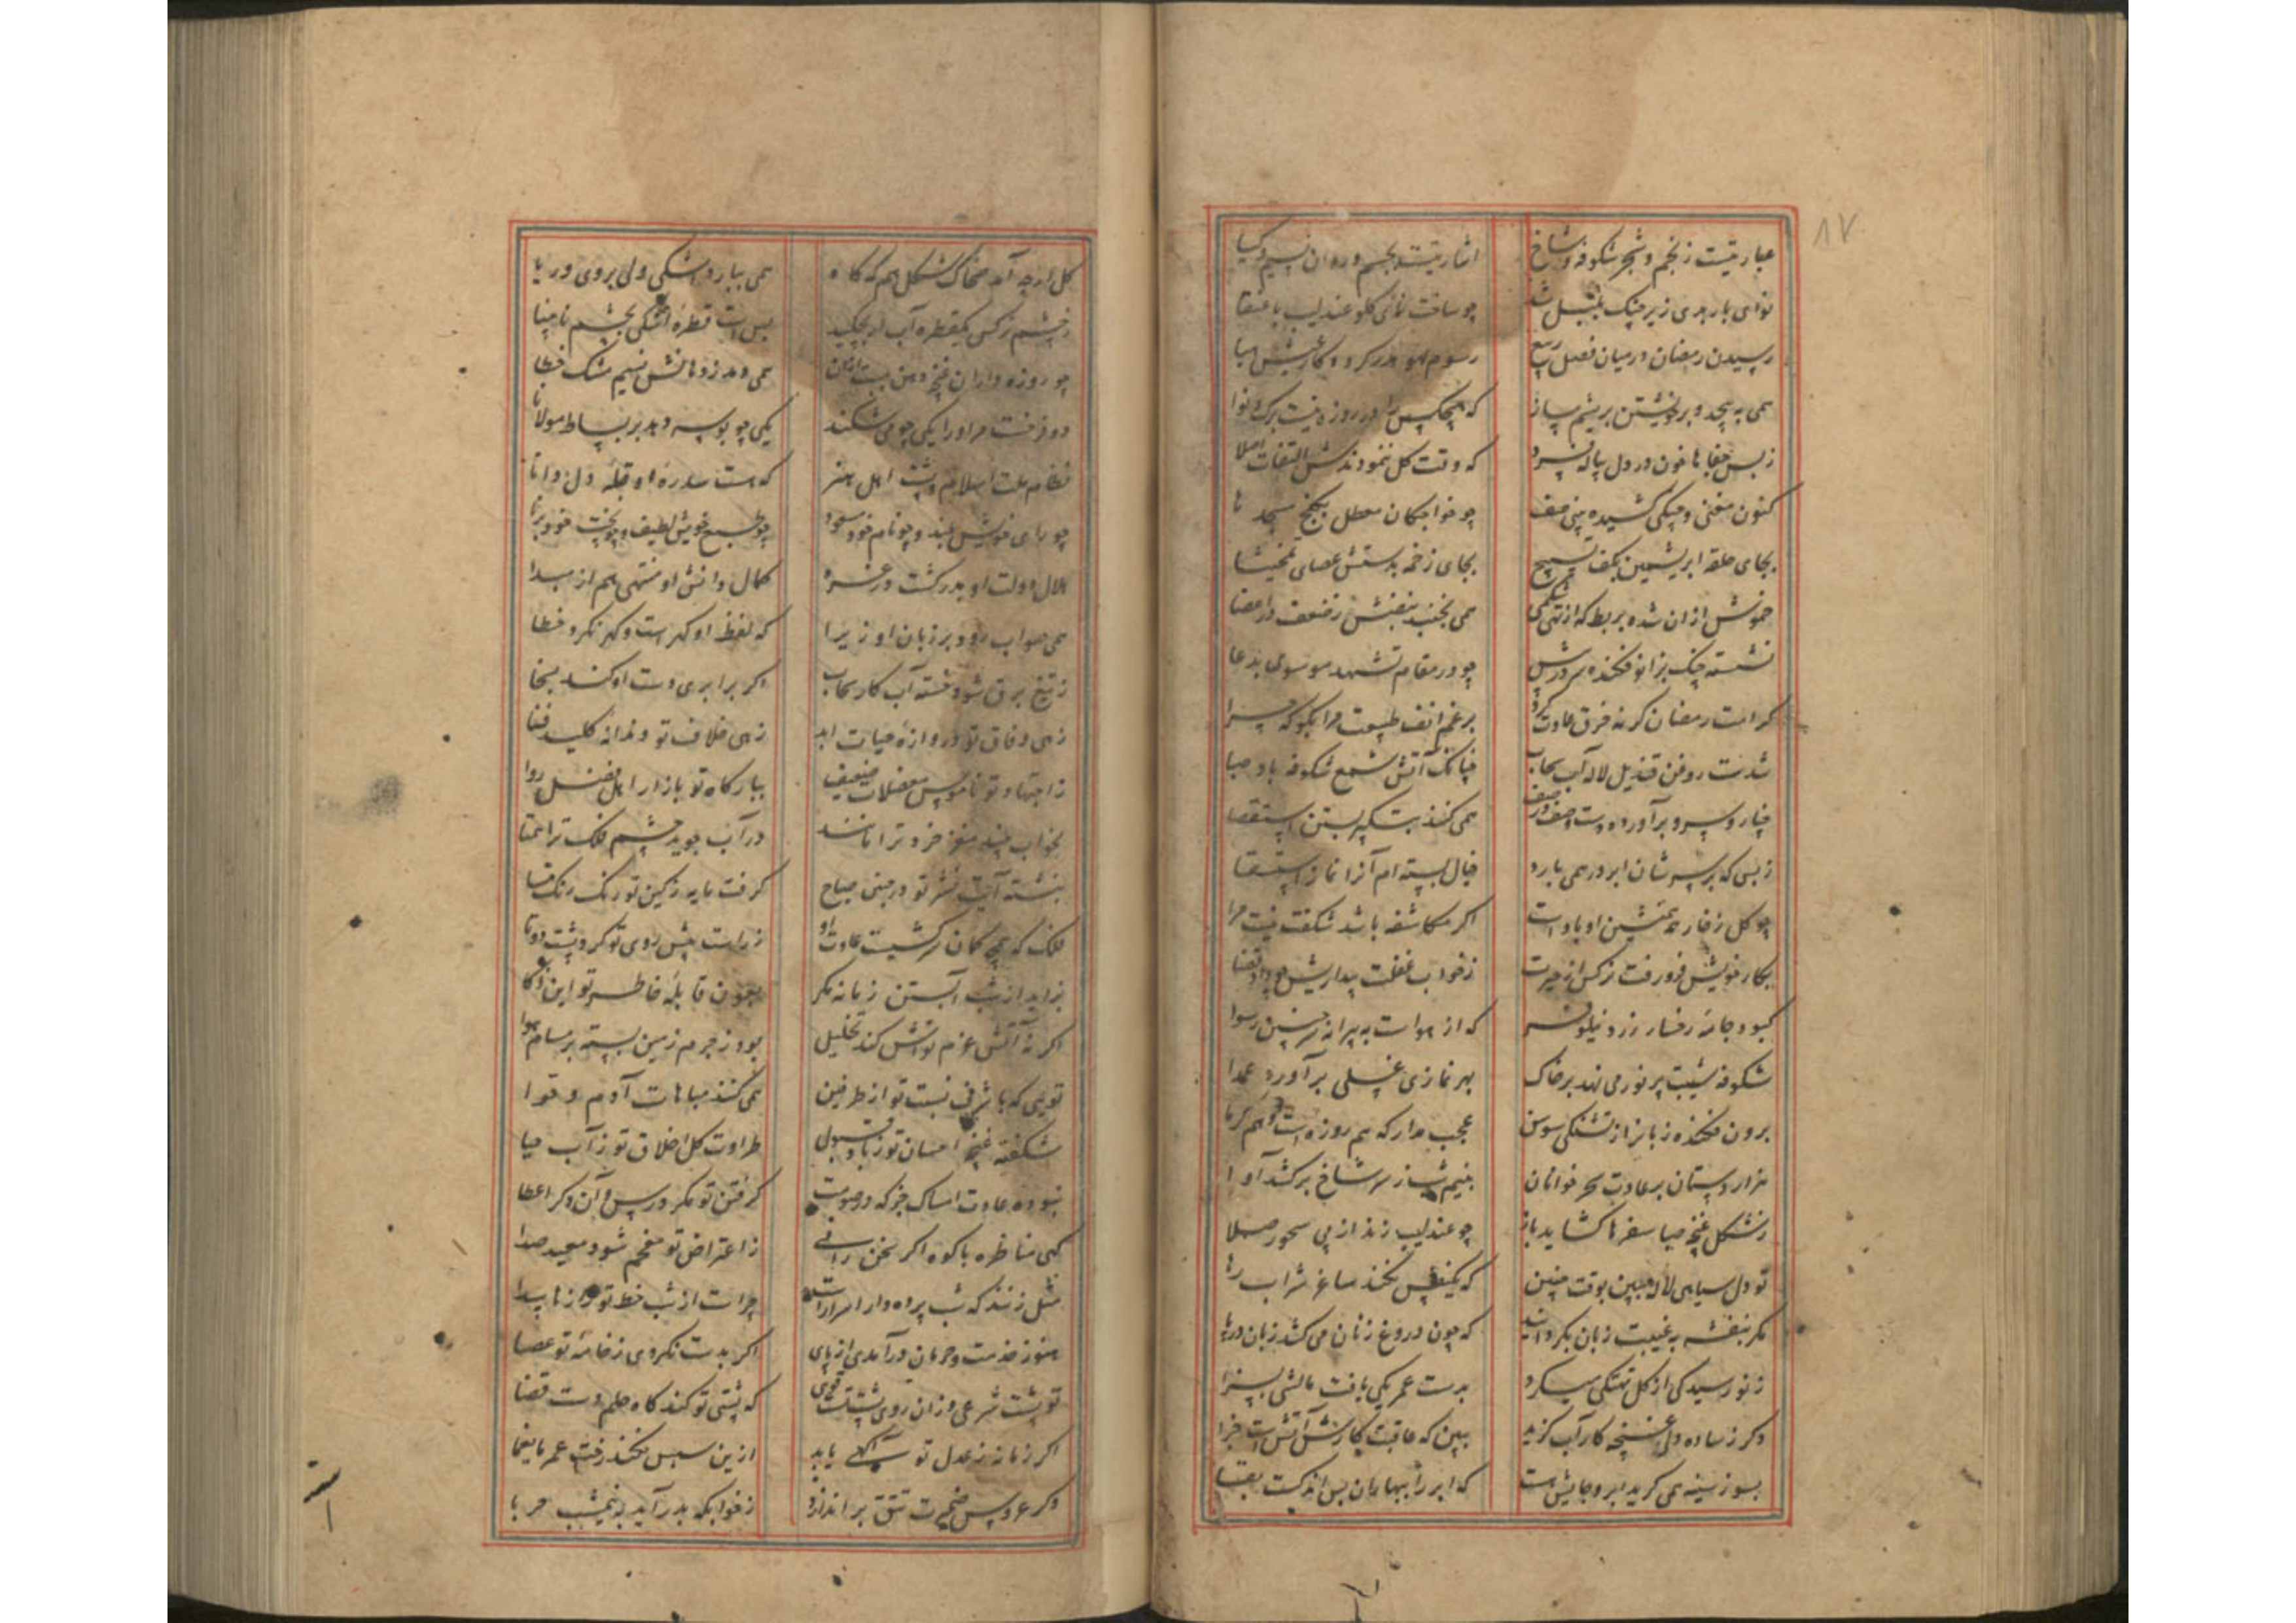 ۸۷
عبارتیست ز نجم و شجر شکوفه و شاخ اشارتیست بجسم و روان نسیم و کیا
نوای باربدی زیر چنک بلبل شد چو ساخت نای کلو عندلیب با عنقا
رسیدن رمضان در میان فصل ربیع رسوم لهو هدر کرد و کار عیش هبا
همی به پیچد بر خویشتن بریشم ساز که هیچکس را در روزه نیست برک و نوا
ز بس جفاها خون در دل پیاله فسرد که وقت کل ننمودند ش التفات اصلا
کنون مغنی و چنکی کشیده بینی صف چو خواجکان معطل بکنج مسجد ها
بجای حلقه ابریشمین بکف تسبیح بجای زخمه بدستش عصای
خموش از ان شده بربط که از تهی شکمی همی نجنبد نبضش ز ضعف در اعضا
نشسته چنک بزانو فکنده سر در پیش چو در مقام تشهد موسوس بدعا
کرامت رمضان کر نه خرق عادت کرد برغم انف طبیعت مرا بکو که چرا
شدست روغن قندیل لاله آب سحاب چنانک آتش شمع شکوفه باد صبا
چنار و سرو برآورده دست صف در صف همی کنند بتکبیر بستن استقصا
ز بس که بر سر شان ابر در همی بارد خیال بسته ام آنرا نماز استسقا
چو کل ز خار همنشین او باد است اکر مکاشفه باشد شکفت نیست مرا
بکار خویش فرو رفت نرکس از حیرت ز خواب غفلت بیداریش چو داد قضا
کبود جامه رخسار زرد نیلوفر که از هواست به پیرانه سر چنین رسوا
شکوفه شیبت پر نور می نهد بر خاک بهر نمازی غسلی برآورد عمدا
برون فکنده زبانرا ز تشنکی سوسن عجب مدار که هم روزه است و هم کرما
هزار دستان بر عادت سحر خوانان بنیم شب ز سر شاخ برکشد آوا
ز شکل غنچه صبا سفرها کشاید باز چو عندلیب زند از پی سحور صلا
تو دل سیاهی لاله ببین بوقت چنین که یکنفس نکند ساغر شراب رها
مکر بنفشه به غیبت زبان بکردانید که چون دروغ زنان می کشد زبان ز قفا
ز نو رسیدکی ار کل تهتکی میکرد بدست عمر یکی یافت مالشی بسزا
دکر ز ساده دلی غنچه کار آب کزید ببین که عاقبت کارش آتش است جزا
بسوز سینه همی کرید ابر و جایش هست که ابر را ببهاران بس اندکست بقا
کل ارچه آمد ضحاک شکل هم که کاه همی ببارد اشکی ولی بروی و ریا
ز چشم نرکس یکقطره آب اربچکید بس است قطره اشکی بچشم نابینا
چو روزه داران غنچه دهن ببست از ان همی دمد ز دهانش نسیم مشک خطا
دو فرخست مر او را یکی چو می شکند یکی چو بوسه دهد بر بساط مولانا
نظام ملت اسلام و پشت اهل هنر که هست سدره او قبله دل دانا
چو رای خویش بلند و چو نام خود مسعود چو طبع خویش لطیف و چو بخت خود برنا
هلال دولت او بدر کشت در غره کمال دانش او منتهی هم از مبدا
همی صواب رود بر زبان او زیرا که لفظ او کهرست و کهر نکرد خطا
ز تیغ برق شود خسته آب کار سحاب اکر برابری دست او کند بسخا
زهی وفاق تو دروازه حیات ابد زهی خلاف تو دندانه کلید فنا
ز اجتهاد تو ناموس معضلات ضعیف ببارکاه تو بازار اهل فضل روا
بخواب بیند مغز خرد ترا مانند در آب جوید چشم فلک ترا همتا
نبشته آیت نشر تو در جبین صباح کرفت مایه ز کین تو رنک رنک مسا
فلک که همچو کمان سرکشیست عادت او ز راست پیش روی تو کرد پشت دوتا
نزاید از شب آبستن زمانه مکر بعون قابله خاطر تو ابن ذکا
اکر نه آتش عزم تواش کند تحلیل بود ز جرم زمین بسته بر مسام هوا
تویی که با شرف نسبت تو از طرفین همی کنند مباهات آدم و حوا
شکفته غنچه احسان تو ز باد قبول طراوت کل اخلاق تو ز آب حیا
نبوده عادت امساک جز که در دو صوبت کرفتن تو مکر درس و آن دکر اعطا
کهی مناظره با کوه اکر سخن رانی ز اعتراض تو مفحم شود معید صدا
مثل زنند که شب پرده دار اسرار است چراست از شب خط تو رازها پیدا
هنوز خدمت و حرمان درآمدی از پای اکر بدست نکردی ز خامه تو عصا
تو پشت شرعی و زان روی پشتت قوی که پشتی تو کند کاه حلم دست قضا
اکر زمانه ز عدل تو آکهی یابد ازین سپس نکند رخت عمر ما یغما
وکر عروس ضمیرت تتق براندازد ز خوابکه بدر آید بنیمشب حربا